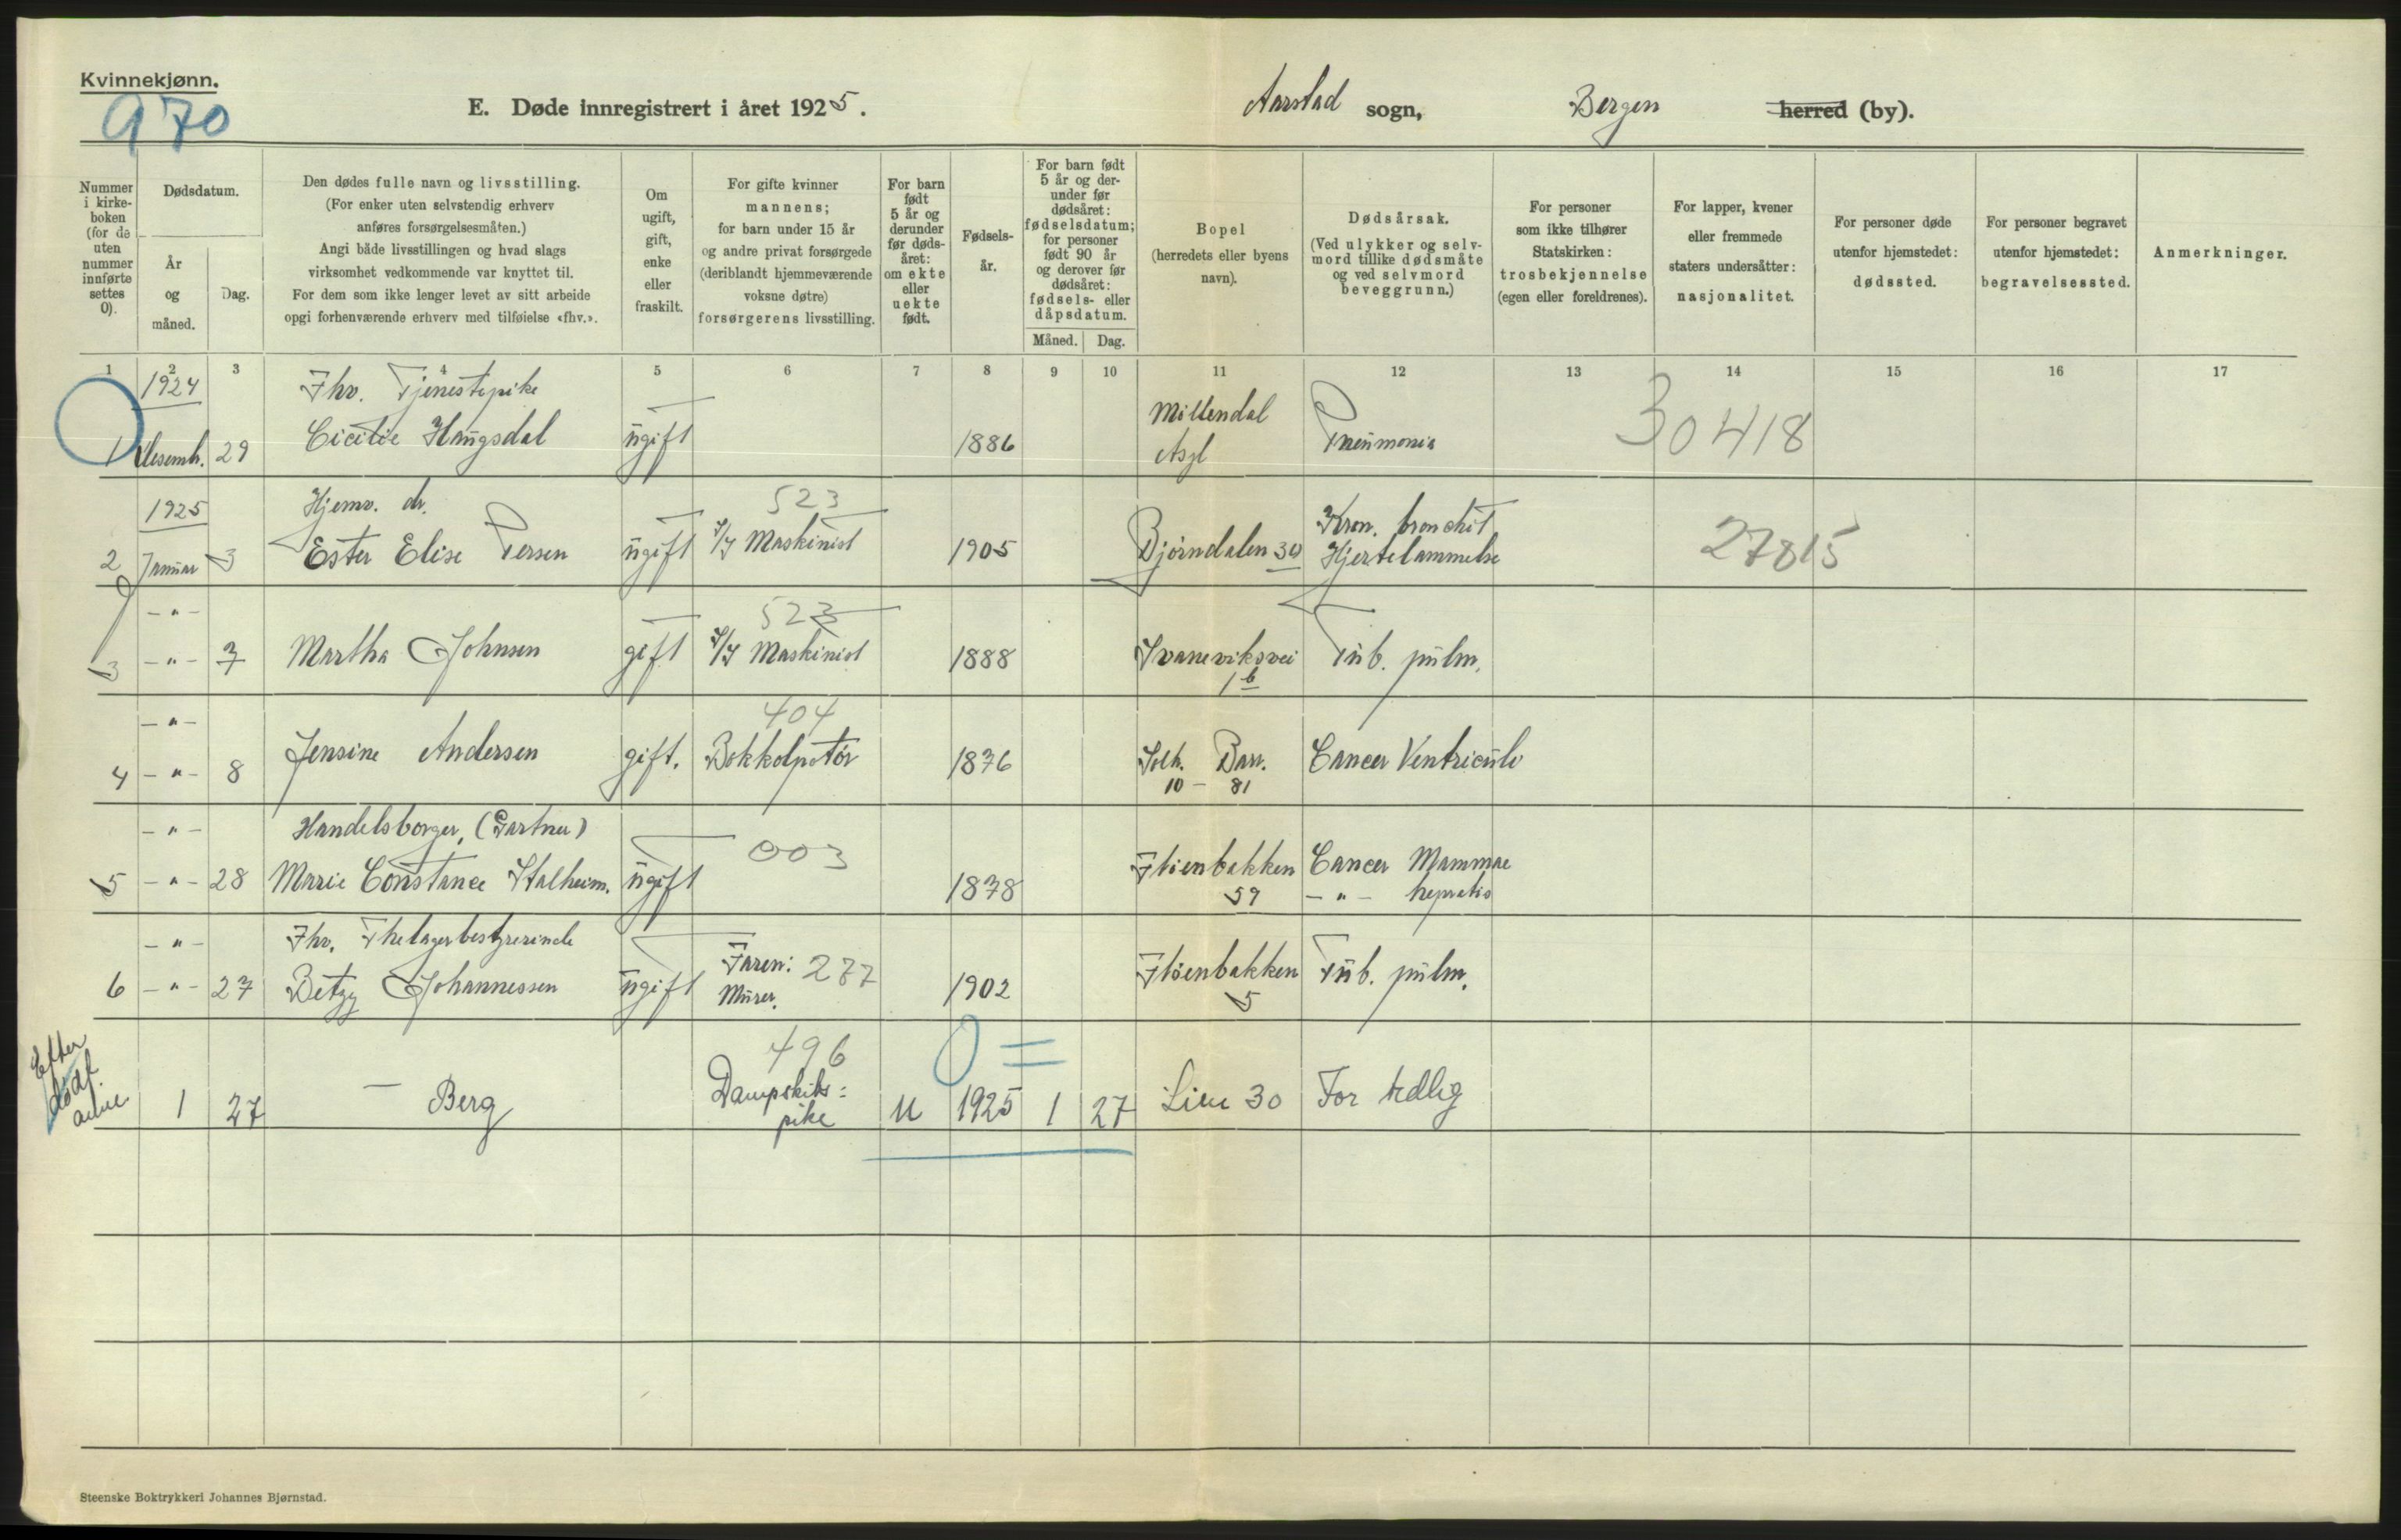 Kvinnekjønn.
970
E. Døde innregistrert i året 1925.
Aarstad sogn,
Bergen herred (by).
Nummer i kirkeboken (for de uten nummer innførte settes 0).
Dødsdatum.
År og måned.
Dag.
Den dødes fulle navn og livsstilling.
(For enker uten selvstendig erhverv
anføres forsørgelsesmåten.)
Angi både livsstillingen og hvad slags
virksomhet vedkommende var knyttet til.
For dem som ikke lenger levet av sitt arbeide
opgi forhenværende erhverv med tilføielse «fhv.».
Om ugift, gift, enke eller fraskilt.
For gifte kvinner
mannens;
for barn under 15 år
og andre privat forsørgede
(deriblandt hjemmeværende
voksne døtre)
forsørgerens livsstilling.
For barn født 5 år og derunder før dødsåret: om ekte eller uekte født.
Fødselsår.
For barn født 5 år og derunder før dødsåret: fødselsdatum; for personer født 90 år og derover før dødsåret: fødsels- eller dåpsdatum.
Måned. Dag.
Bopel
(herredets eller byens
navn).
Dødsårsak.
(Ved ulykker og selvmord tillike dødsmåte og ved selvmord beveggrunn.)
For personer
som ikke tilhører
Statskirken:
trosbekjennelse
(egen eller foreldrenes).
For lapper, kvener
eller fremmede
staters undersåtter:
nasjonalitet.
For personer døde
utenfor hjemstedet:
dødssted.
For personer begravet
utenfor hjemstedet:
begravelsessted.
Anmerkninger.
1 2 3 4 5 6 7 8 9 10 11 12 13 14 15 16 17
1924 Fhv. Tjenestepike Møllendal
1 Desemb. 29 Cicilie Haugsdal ugift 1886 Asyl Pneumonia 30418
1925 Hjemv. dr. 523 Kron. bronchit
2 Januar 3 Ester Elise Persen ugift Maskinist 1905 Bjørndalen 30 Hjertelammelse 27815
-"- 523
3 -"- 7 Martha Johnsen gift Maskinist 1888 Svaneviksvei Tub. pulm.
1b
-"- 404
4 -"- 8 Jensine Andersen gift. Bokkolpotør 1876 Solh. Barr. Cancer Ventriculi
10 - 81
-"- Handelsborger, (Gartner) 003
5 -"- 28 Marie Constance Stalheim. ugift 1878 Fløenbakken Cancer Mammae
59 -"- hepatis
-"- Fhv. Thelagerbestyrerinde
6 -"- 27 Betzy Johannessen ugift Faren: 277 1902 Fløenbakken Tub. pulm.
Murer. 5
Efter
dødf.
496 0 =
1 27 — Berg Dampskibs=
pike U 1925 1 27 Lien 30 For tidlig
Steenske Boktrykkeri Johannes Bjørnstad.